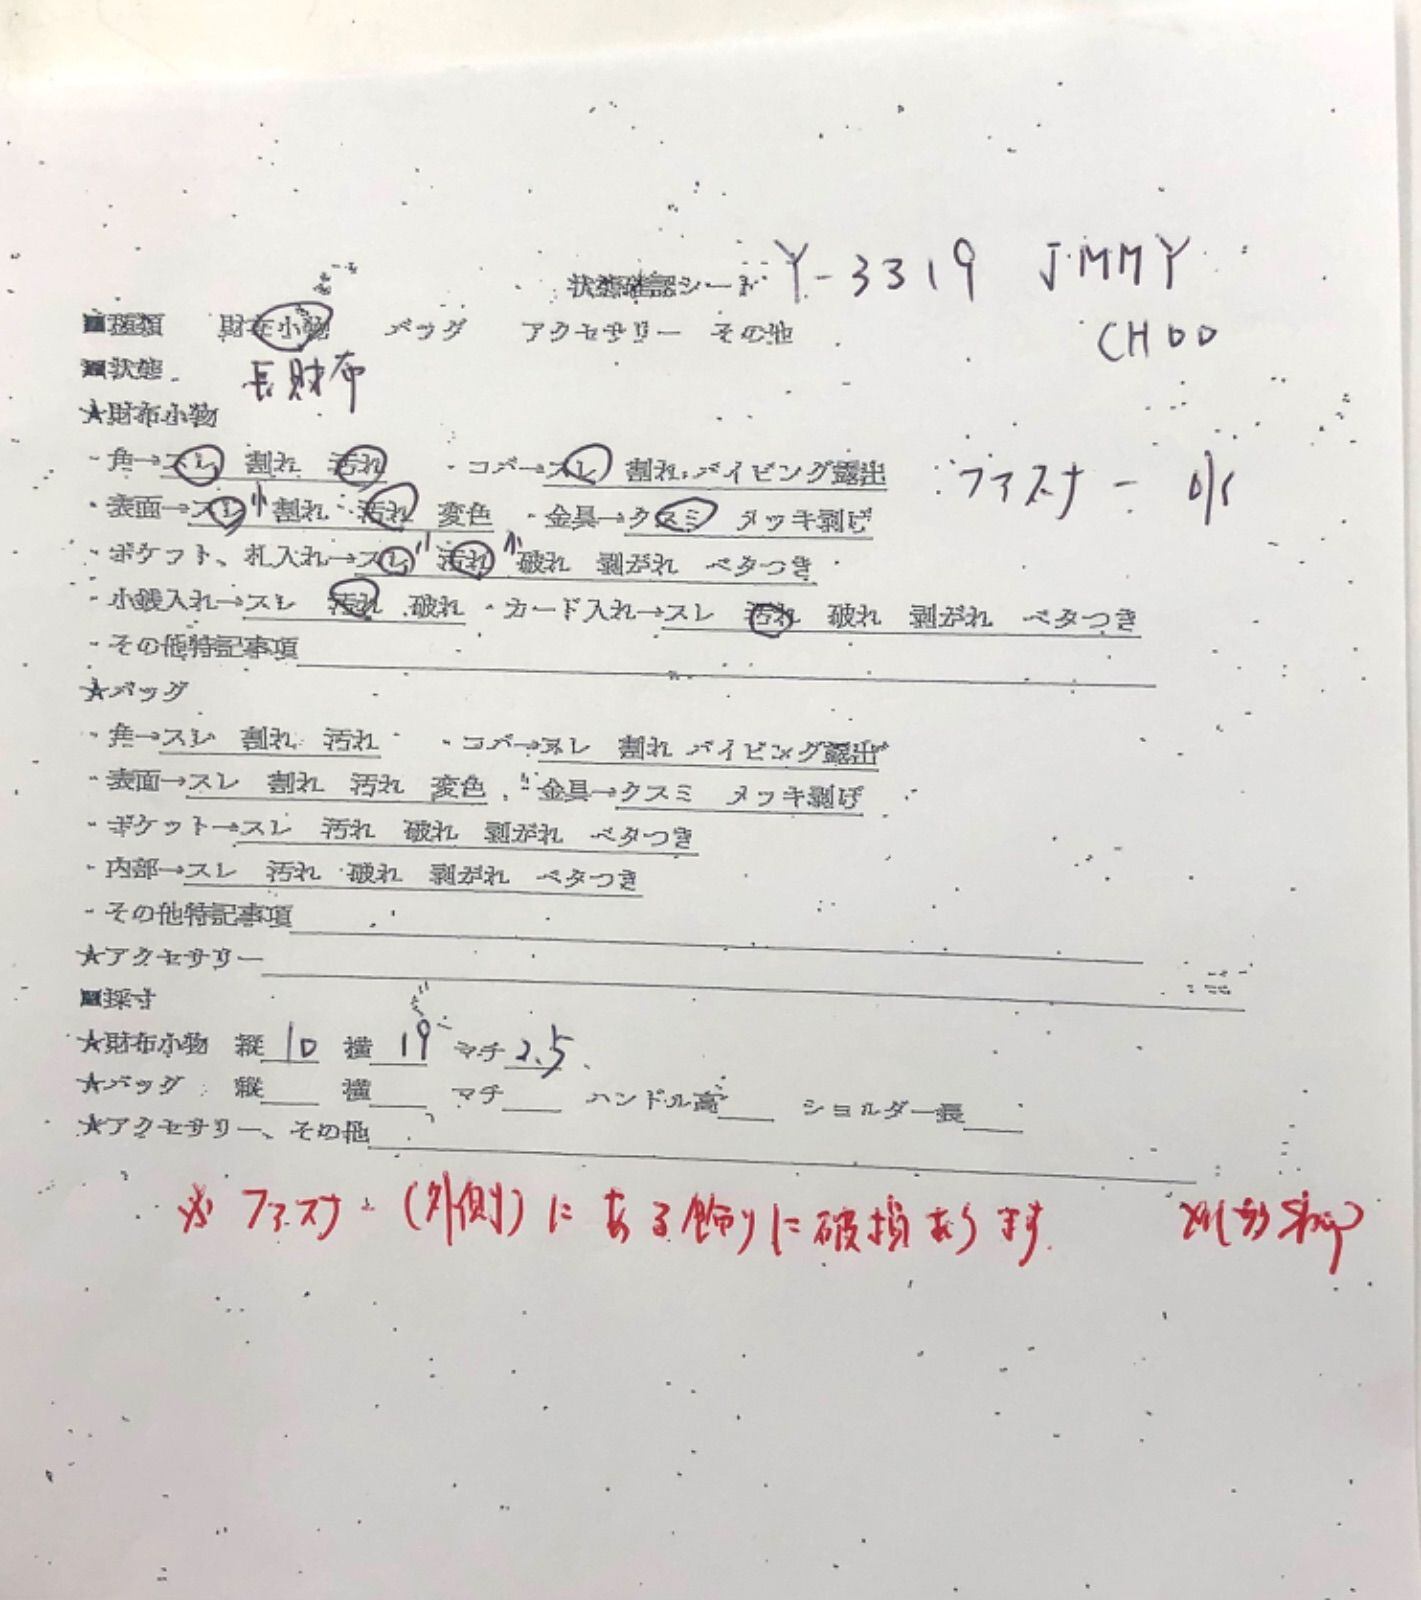 状態確認シート Y-3319 JMMY
CHOO
■種類 財布小物 バッグ アクセサリー その他
■状態 長財布
★財布小物
・角→スレ 割れ 汚れ ・コバ→スレ 割れ パイピング露出 ファスナー 小
・表面→スレ 小 割れ 汚れ 変色 ・金具→クスミ メッキ剥げ
・ポケット、札入れ→スレ 小 汚れ 小 破れ 剥がれ ベタつき
・小銭入れ→スレ 汚れ 破れ ・カード入れ→スレ 汚れ 破れ 剥がれ ベタつき
・その他特記事項
★バッグ
・角→スレ 割れ 汚れ ・コバ→スレ 割れ パイピング露出
・表面→スレ 割れ 汚れ 変色 ・金具→クスミ メッキ剥げ
・ポケット→スレ 汚れ 破れ 剥がれ ベタつき
・内部→スレ 汚れ 破れ 剥がれ ベタつき
・その他特記事項
★アクセサリー
■採寸
★財布小物 縦 10 横 19 マチ 2.5
★バッグ 縦 横 マチ ハンドル高 ショルダー長
★アクセサリー、その他
※ファスナー(外側)にある飾りに破損あります